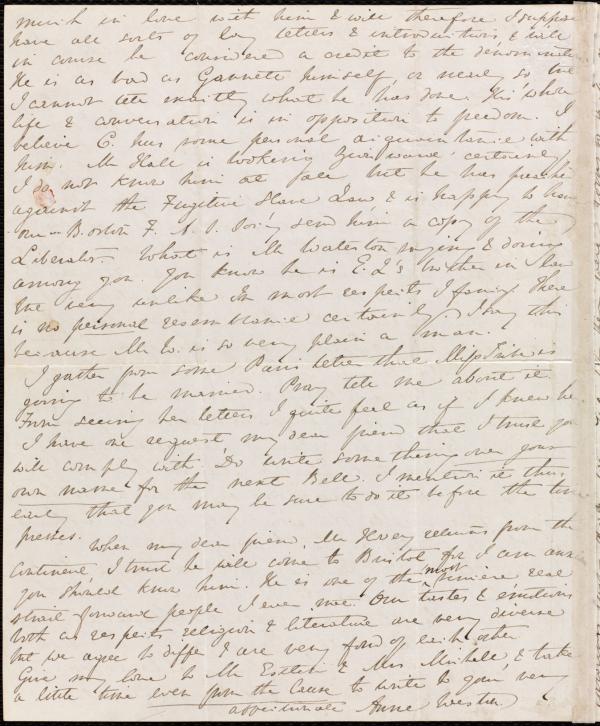 much in love with him & will therefore I suppose
have all sorts of lay letters & introductions & will
in course be considered a credit to the denomination
He is as bad as Gannett himself, or nearly so, tho'
I cannot tell exactly what he has done. His whole
life & conversation is in opposition to freedom. I
believe C. has some personal acquaintance with
him. Mr Hale is looking Zionward certainly
I do not know him at all but he has preached
against the Fugitive Slave Law & is happy to have
our Boston F. A. S. Soc'y send him a copy of the
Liberator. What is Mr Waterston saying & doing
among you. You know he is E. Q's brother in law
tho very unlike in most respects I fancy. There
is no personal resemblance certainly. I say this
because Mr W. is so very plain a man.
I gather from some Paris letter that Miss is
going to be married. Pray tell me about it
From seeing her letters I quite feel as if I knew her
I have one request my dear friend that I trust you
will comply with Do write something over your
own name for the next Bell. I mention it thus
early that you may be sure to do it before the time
presses.
When my dear friend, Mr Hovey returns from the
Continent, I trust he will come to Bristol for I am anxious
you should know him. He is one of the most sincere, real
strait forward people I ever met. Our tastes & emotions
both as respects religion & literature are very diverse
but we agree to differ & are very fond of each other
Give my love to Mr Estlin & Miss Michell & take
a little time even from the Cause to write to your very
affectionate Anne Weston